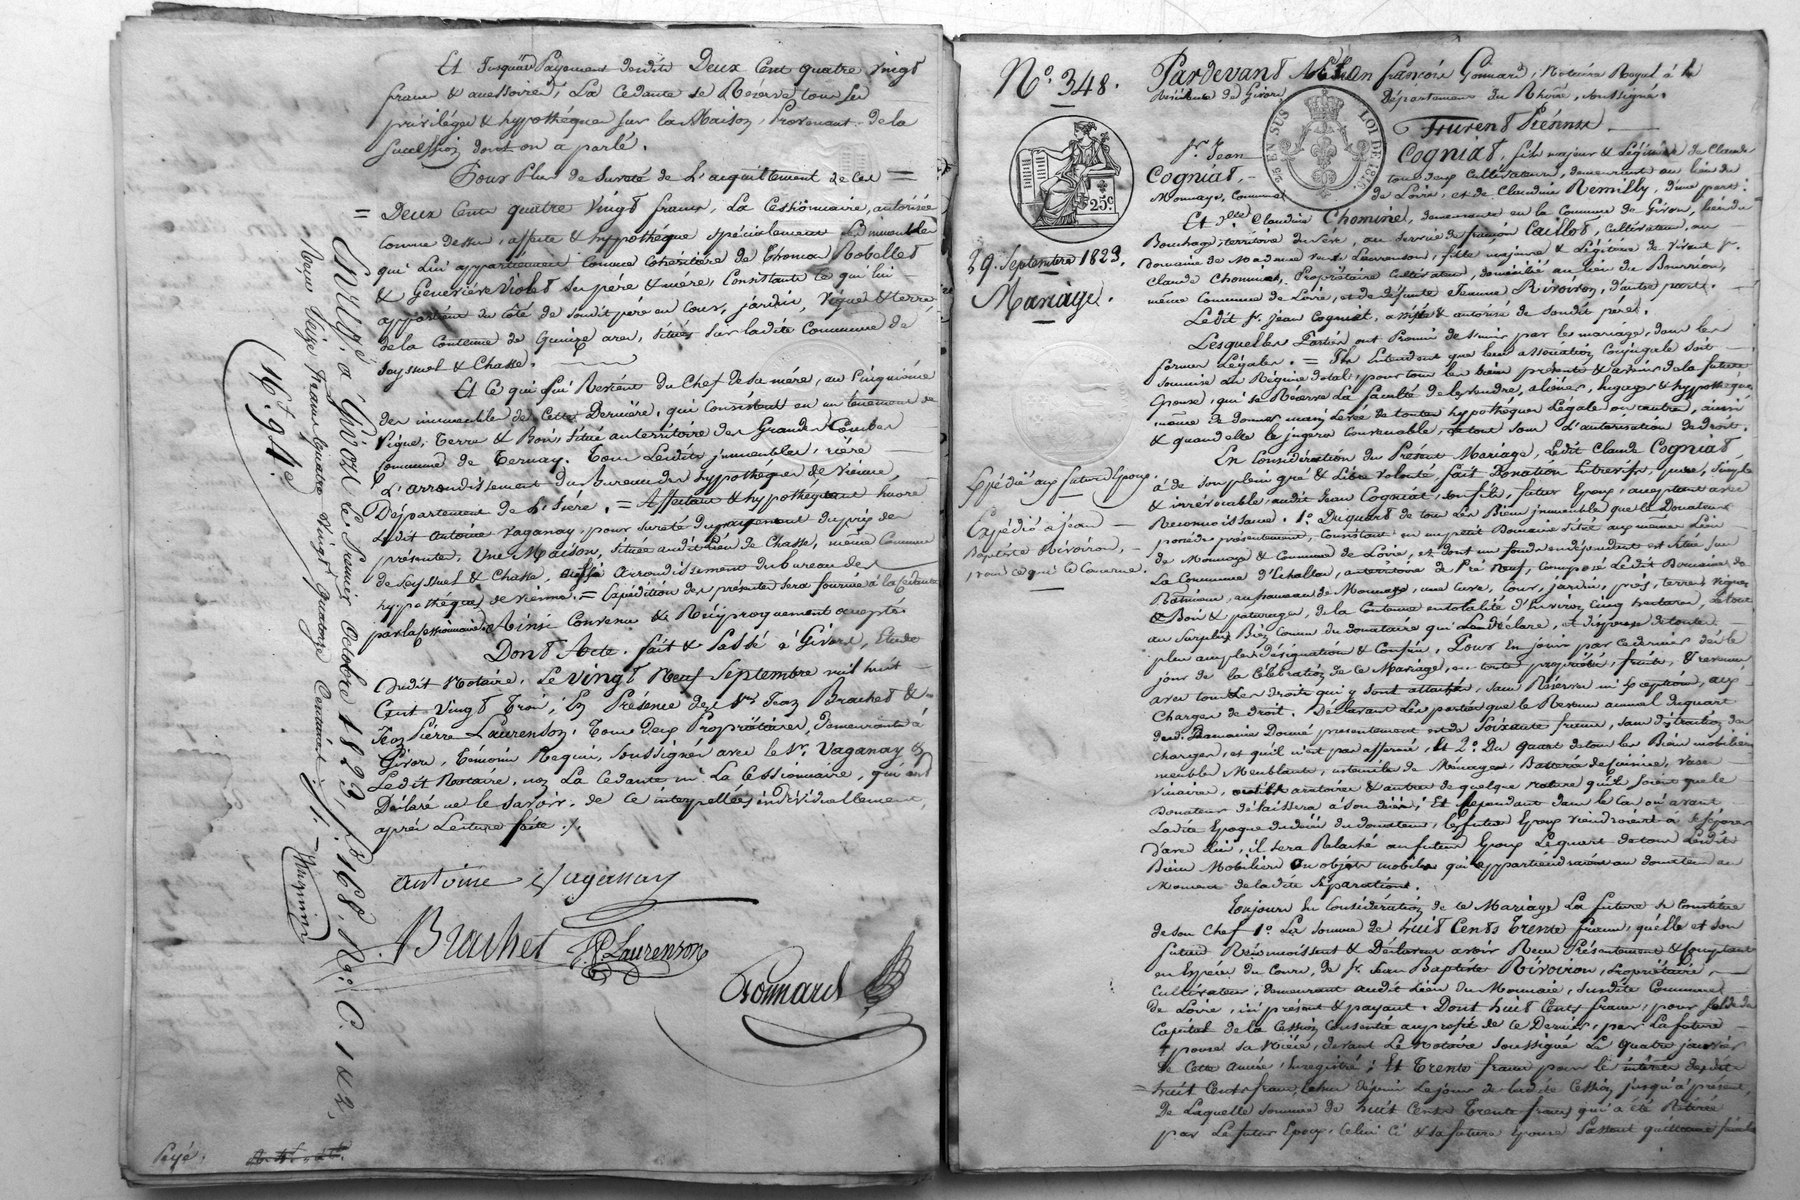 Et Jusqu'au Payement desdits Deux Cent quatre Vingt
francs & accessoires, La Cedante se Réserve tous ses
privilèges & hypothéques sur la Maison, Provenant de la
succession dont on a parlé.
Pour Plus de sureté de l'acquittement de ces =
= Deux Cents quatre Vingt francs, La Cessionnaire, autorisée
comme dessus, affecte & hypothéque spécialement L'immeuble
qui Lui appartient comme cohéritière de Thomas Robellet
& Geneviève Violet ses père & mère, Consistante ce qui lui
appartient du côté de sondit père en Cour, jardin, Vigne & terre
de la Contenue de Quinze ares, situés sur ladite Commune de
Seyssuel & Chasse.
Et Ce qui Lui Revient du Chef de sa mére, au Cinquième
des immeubles de Cette Dernière, qui Consistent en un tenement de
Vigne, Terre & Bois, situé au territoire des Grandes Combes
Commune de Ternay. Tous Lesdits immeubles, rière
L'arrondissement du Bureau des hypothéques de Vienne,
Département de L'Isère. = Affectant & hypothéquant
Ledit Antoine Vaganay, pour sureté du payement du prix des
présentes, Une Maison, située audit Lieu de Chasse, même Commune
de Seyssuel & Chasse, Arrondissement du bureau des
hypothéques de Vienne. = Expédition des présentes sera fournie à la Cédante
par la Cessionnaire. Ainsi Convenu & Réciproquement accepté.
Dont Acte. fait & Passé à Givors, Etude
Dudit Notaire, Le Vingt Neuf Septembre mil huit
Cent Vingt Trois, En Présence des Srs Jean Brachet &
Jean Pierre Laurenson, Tous Deux Propriétaires, Demeurants à
Givors, Témoins Requis, Soussignés avec le Sr. Vaganay &
Ledit Notaire, non La Cedante ni La Cessionnaire, qui ont
Déclaré ne le savoir, de ce interpellées individuellement,
après Lecture faite ./.
Antoine Vaganay
Brachet J.P. Laurenson
Gonnard
Enregé à Givors le Premier Octobre 1823, fo 168, Ro C. 1 & 2,
Reçu Seize francs quatre Vingt quatorze Centimes
16.f 94.c
Payé.
No. 348.
25c
29. Septembre 1823.
Mariage.
Expédié aux futurs Epoux.
Expédié à Jean
Baptiste Rivoiron,
pour ce qui le concerne.
Pardevant Me Jean françois Gonnard, Notaire Royal à la
Résidence de Givors, Département du Rhône, soussigné.
EN SUS LOI DE 1816
furent Présents
Sr. Jean Cogniat, fils majeur & Légitime de Claude
Cogniat, tous deux Cultivateurs, demeurants au lieu de
Monnaye, Commune de Loire, et de Claudine Remilly, d'une part.
Et Dlle Claudine Chomine, demeurante en la Commune de Givors, lieu du
Bouchage, territoire, au service de françois Caillot, Cultivateur, au
domaine de Madame veuve Laurenson, fille majeure & Légitime de Vivant Sr.
Claude Chomine, Propriétaire Cultivateur, domicilié au lieu du
même Commune de Loire, et de défunte Jeanne Rivoiron, d'autre part.
Ledit Sr. Jean Cogniat, assisté & autorisé de sondit père.
Lesquelles Parties ont Promis de s'unir par le mariage, dans les
formes Légales. = Ils Entendent que leur association Conjugale soit
soumise au Régime dotal, pour tous les biens présents & à venir de la future
Epouse, qui se Réserve La faculté de les vendre, aliéner, Engager & hypothéquer,
même de donner main Levée de toutes hypothéques Légales ou autres, ainsi
& quand elle le jugera Convenable, le tout sous L'autorisation de droit.
En Considération du Présent Mariage, Ledit Claude Cogniat
a de son plein gré & Libre volonté, fait Donation Entrevifs, pure, simple
& irrévocable, audit Jean Cogniat, son fils, futur Epoux, acceptant avec
Reconnoissance. 1o. Du quart de tous Les Biens immeubles que le Donateur
possède présentement, Consistant en un petit Domaine situé au même Lieu
de Monnaye & Commune de Loire, et dont un fonds indépendant est situé sur
La Commune d'Echallas, au territoire de Pré Neuf, Composé Ledit Domaine de
Bâtiments, au hameau de Monnaye, une Cour, jardin, prés, terres, vignes
& Bois & paturages, de la Contenue en totalité d'Environ Cinq hectares, le tout
au Surplus Bien Connu du donataire qui Le déclare, et dispense de toute
plus ample désignation & Confins, Pour En jouir par Ce dernier dès le
jour de la Célébration de ce Mariage, en toute propriété, fruits, & revenus
avec tous Les droits qui y sont attachés, sans Réserve ni Exception, aux
Charges de droit. Déclarant Les parties que le Revenu annuel du quart
desd. Domaines Donné présentement est de Soixante francs, sans distraction des
charges, et qu'il n'est pas affermé, Et 2o. Du quart de tous les Biens mobiliers
meubles Meublants, ustensiles de Ménages, Batterie de cuisine, vases
vinaires, outils aratoires & autres de quelque nature qu'ils soient que le
Donateur délaissera à son décès; Et Cependant dans le Cas où avant
Ladite Epoque du décès du donateur, les futurs Epoux viendroient à se séparer
d'avec lui, il sera Relaché au futur Epoux Le quart de tous Lesdits
Biens Mobiliers ou objets mobiles qui appartiendraient au donateur au
Moment de ladite séparation.
Toujours En Considération de ce Mariage La future se Constitue
de son Chef 1o. La somme de huit Cents Trente francs, qu'elle et son
futur Reconnoissent & Déclarent avoir Reçu Présentement & Comptant
en Espèces du Cours, de Sr. Jean Baptiste Rivoiron, Propriétaire,
Cultivateur, demeurant audit Lieu de Monnaie, susdite Commune
de Loire, ici présent & payant. Dont huit Cents francs, pour solde du
Capital de la Cession Consentie au profit de ce Dernier, par La future
Epouse sa Nièce, devant Le Notaire soussigné Le quatre janvier
de Cette Année, Enregistré; Et Trente francs pour les intérêts desdits
= huit Cents francs, échus depuis le jour de ladite Cession, jusqu'à présent,
de Laquelle somme de huit Cents Trente francs, qui a été Retirée
par Le futur Epoux, Celui ci & sa future Epouse Passent quittance finale